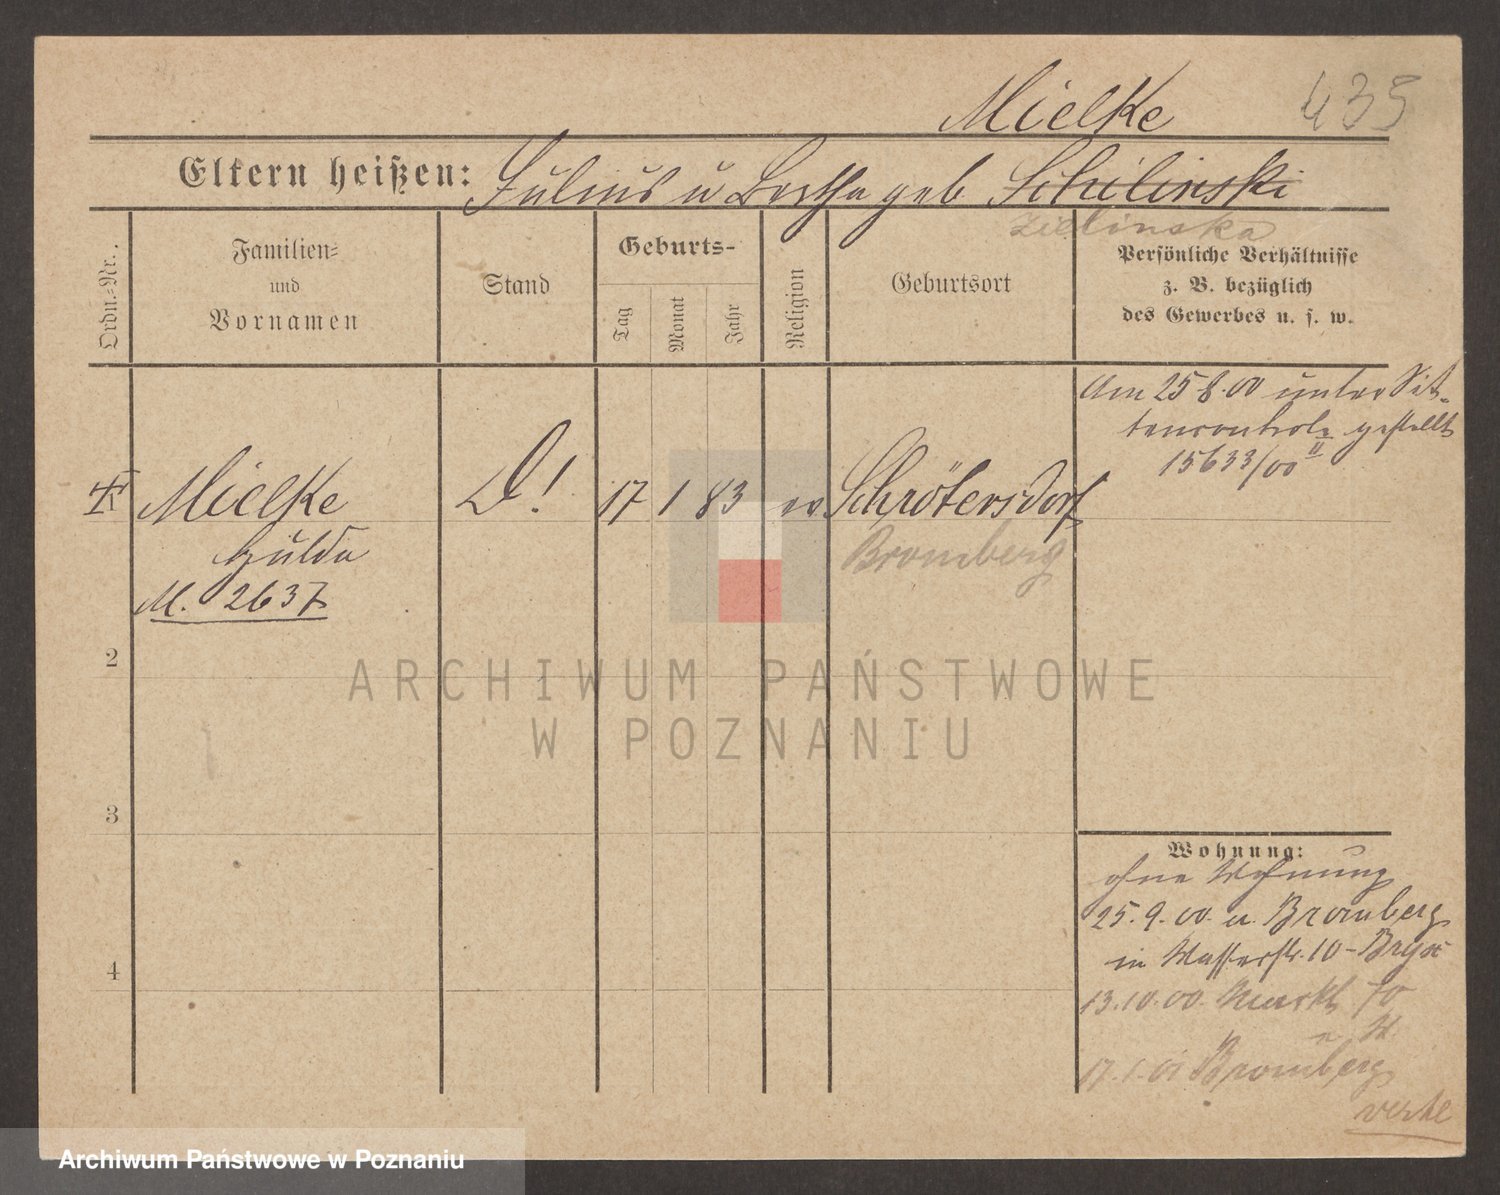 Mielke 435
Eltern heißen: Julius u Bertha geb Schilinski
Zielinska
Ordn.-Nr.
Familien-
und
Vornamen
Stand
Geburts-
Tag
Monat
Jahr
Religion
Geburtsort
Persönliche Verhältnisse
z. B. bezüglich
des Gewerbes u. s. w.
Am 25 8. 00 unter Sit-
tencontrole gestellt
15633/00 II
Mielke D! 17 1 83 ev Schrötersdorf
Hulda Bromberg
M. 2637
2
3
4
Wohnung:
ohne Wohnung
25. 9. 00. n. Bromberg
in Wasserstr. 10-
13. 10. 00. Markt 70
17. 1. 01 Bromberg
verte
ARCHIWUM PAŃSTWOWE
W POZNANIU
Archiwum Państwowe w Poznaniu